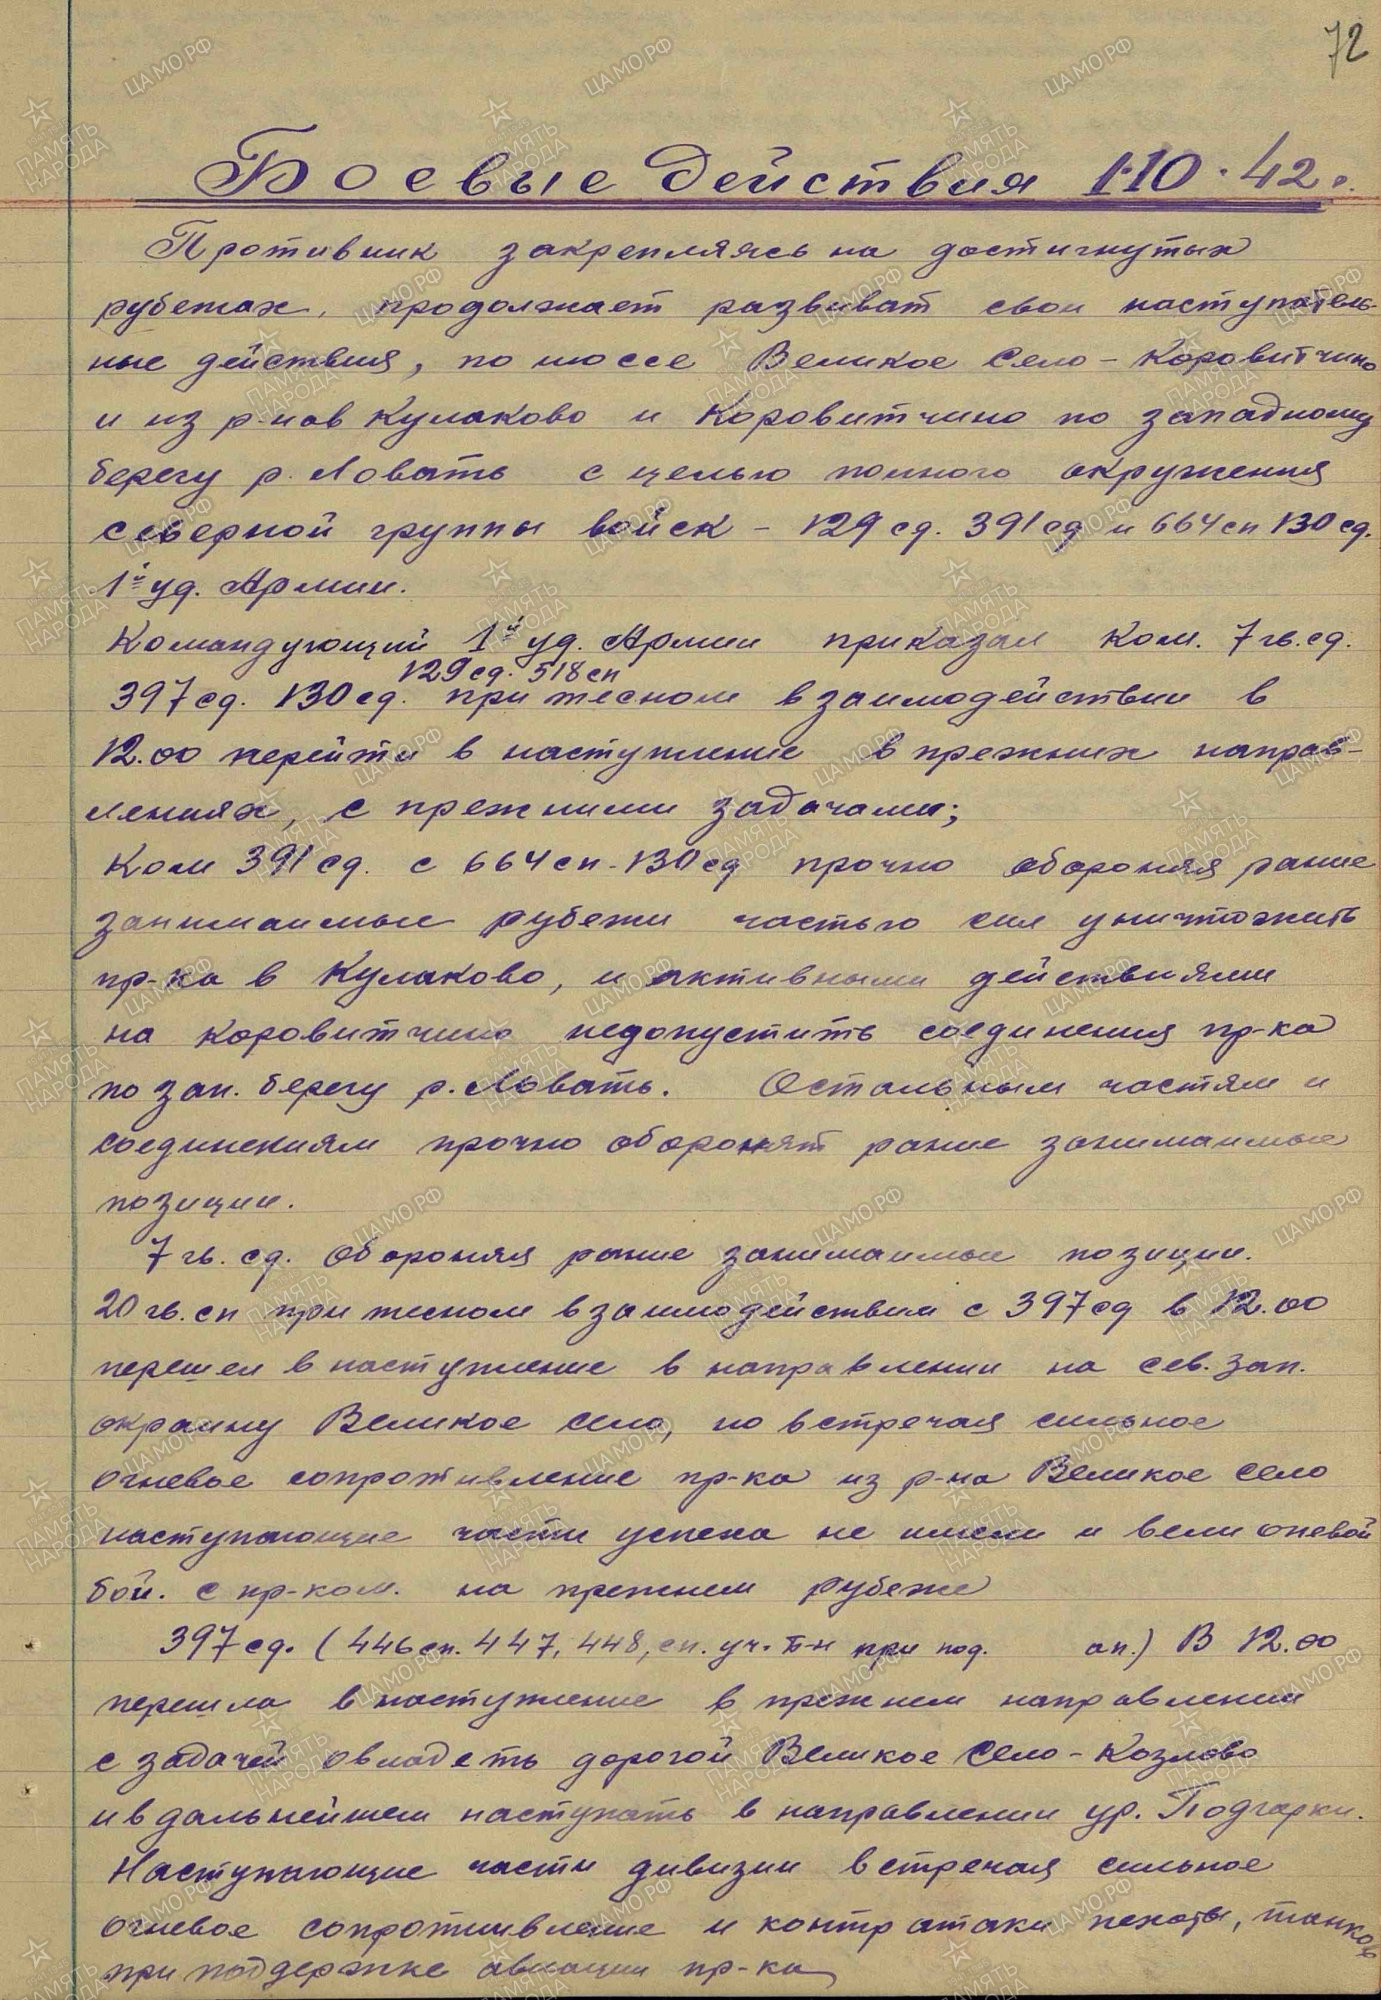 72
Боевые действия 1·10·42г.
Противник закрепляясь на достигнутых
рубежах, продолжает развиват свои наступатель-
ные действия, по шоссе Великое Село - Коровитчино
и из р-нов Кулаково и Коровитчино по западному
берегу р. Ловать с целью полного окружения
северной группы войск - 129 сд. 391 сд и 664 сп 130 сд.
1й уд. Армии.
Командующий 1й уд. Армии приказал ком. 7 гв. сд.
129 сд. 518 сп
397 сд. 130 сд. при тесном взаимодействии в
12.00 перейти в наступление в прежних направ-
лениях, с прежними задачами;
Ком 391 сд. с 664 сп - 130 сд прочно обороняя рание
занимаемые рубежи частью сил уничтожить
пр-ка в Кулаково, и активными действиями
на Коровитчино недопустить соединения пр-ка
по зап. берегу р. Ловать. Остальным частям и
соединениям прочно оборонят рание занимаемые
позиции.
7 гв. сд. обороняя рание занимаемые позиции.
20 гв. сп при тесном взаимодействии с 397 сд в 12.00
перешел в наступление в направлении на сев. зап.
окраину Великое село, но встречая сильное
огневое сопротивление пр-ка из р-на Великое село
наступающие части успеха не имели и вели огневой
бой. с пр-ком. на прежнем рубеже
397 сд. (446 сп. 447, 448, сп. уч. б-н при под. ап.) В 12.00
перешла в наступление в прежнем направлении
с задачей овладеть дорогой Великое Село - Козлово
и в дальнейшем наступать в направлении ур. Подгарки.
Наступающие части дивизии встречая сильное
огневое сопротивление и контратаки пехоты, танков
при поддержке авиации пр-ка